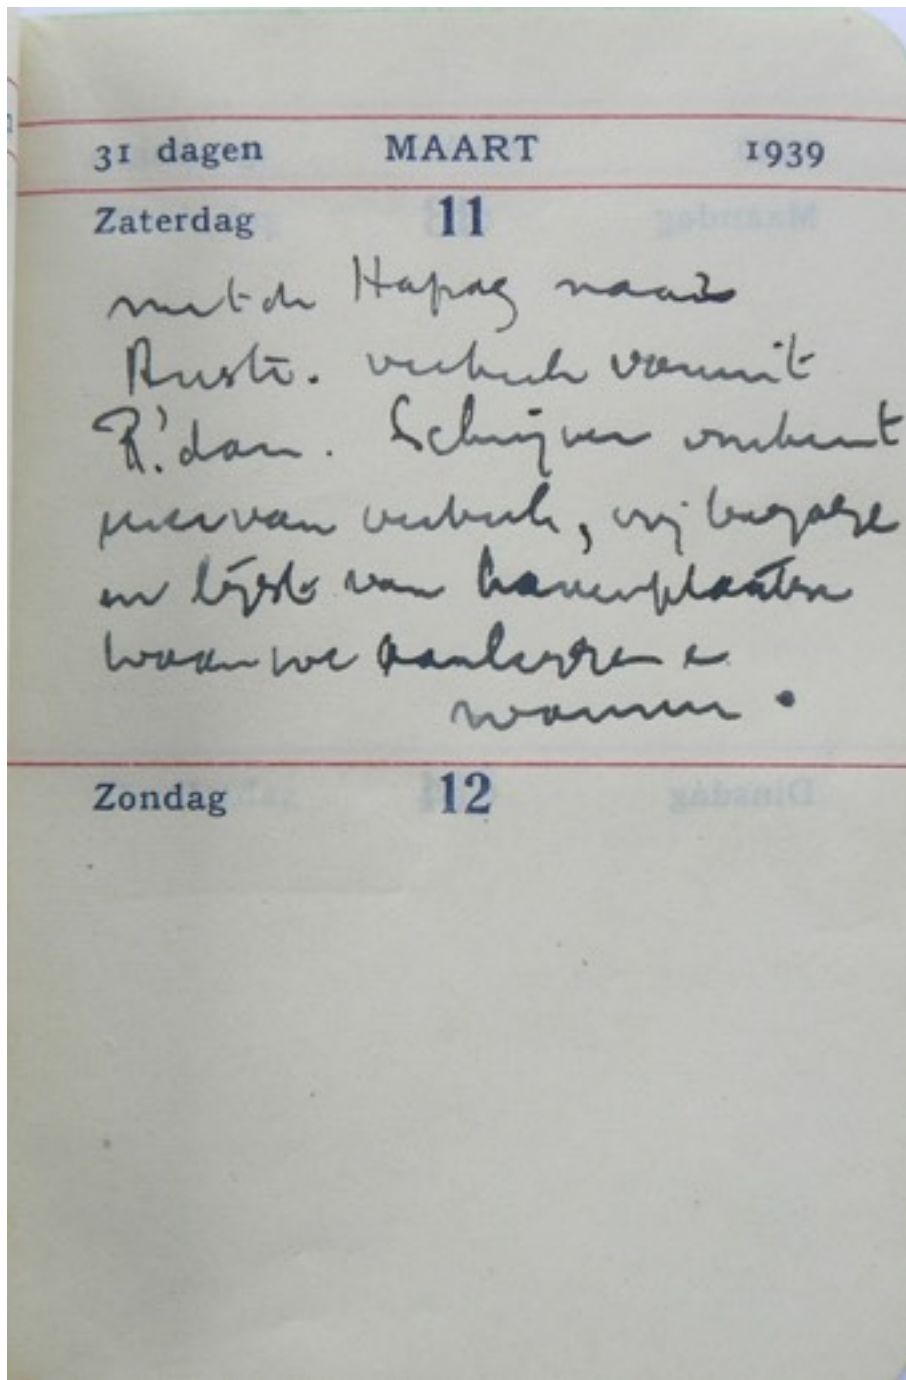 31 dagen MAART 1939
Zaterdag 11
met de Hapag naar
Austr. vertrek vanuit
R'dam. Schrijven omtrent
van vertrek, vrij bagage
en lijst van havenplaatsen
waar we aanleggen e
wannen.
Zondag 12